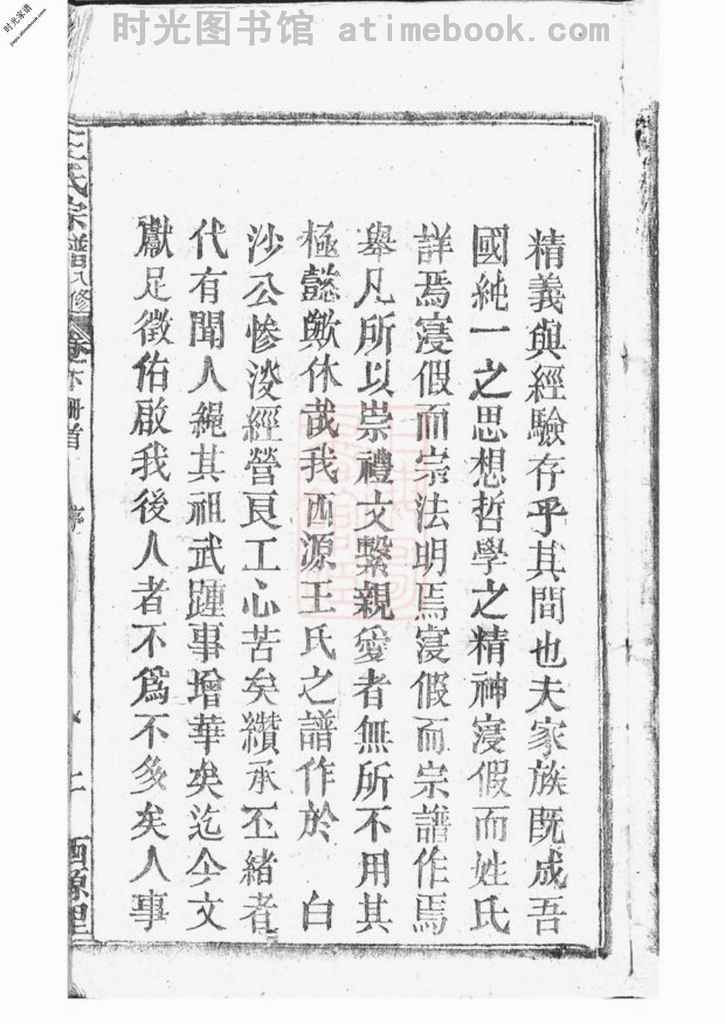 时光图书馆 atimebook.com
时光家谱
精義與經驗存乎其間也夫家族既成吾
國純一之思想哲學之精神寖假而姓氏
詳焉寖假而宗法明焉寖假而宗譜作焉
舉凡所以崇禮文繫親愛者無所不用其
極懿歟休哉我西源王氏之譜作於 白
沙公慘淡經營良工心苦矣纘承丕緒者
代有聞人繩其祖武踵事增華矣迄今文
獻足徵佑啟我後人者不為不多矣人事
王氏宗譜八修 卷下册首 序 西源里